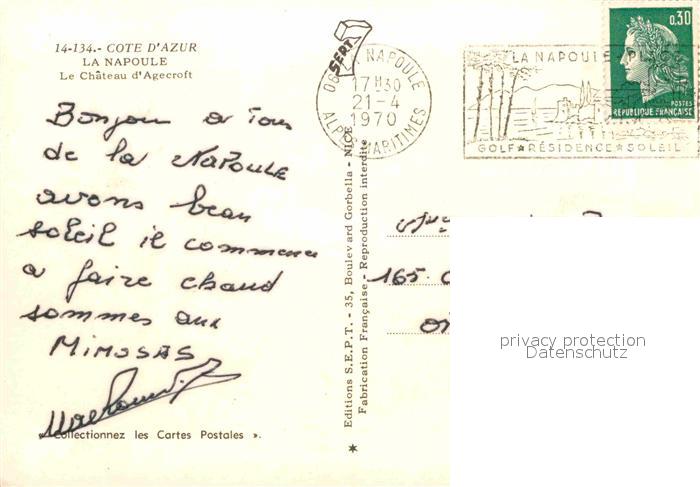 14-134.- COTE D'AZUR
LA NAPOULE
Le Château d'Agecroft
Bonjour a tous
de la NAPOULE
avons beau
soleil il commence
a faire chaud
sommes aux
MIMOSAS
« Collectionnez les Cartes Postales ».
SEPT
06 LA NAPOULE
17H30
21-4
1970
ALPES MARITIMES
LA NAPOULE - PLAGE
GOLF★RÉSIDENCE★SOLEIL
0,30
POSTES
REPUBLIQUE FRANÇAISE
Editions S.E.P.T. - 35, Boulevard Gorbella - NICE
Fabrication Française - Reproduction interdite
165
privacy protection
Datenschutz